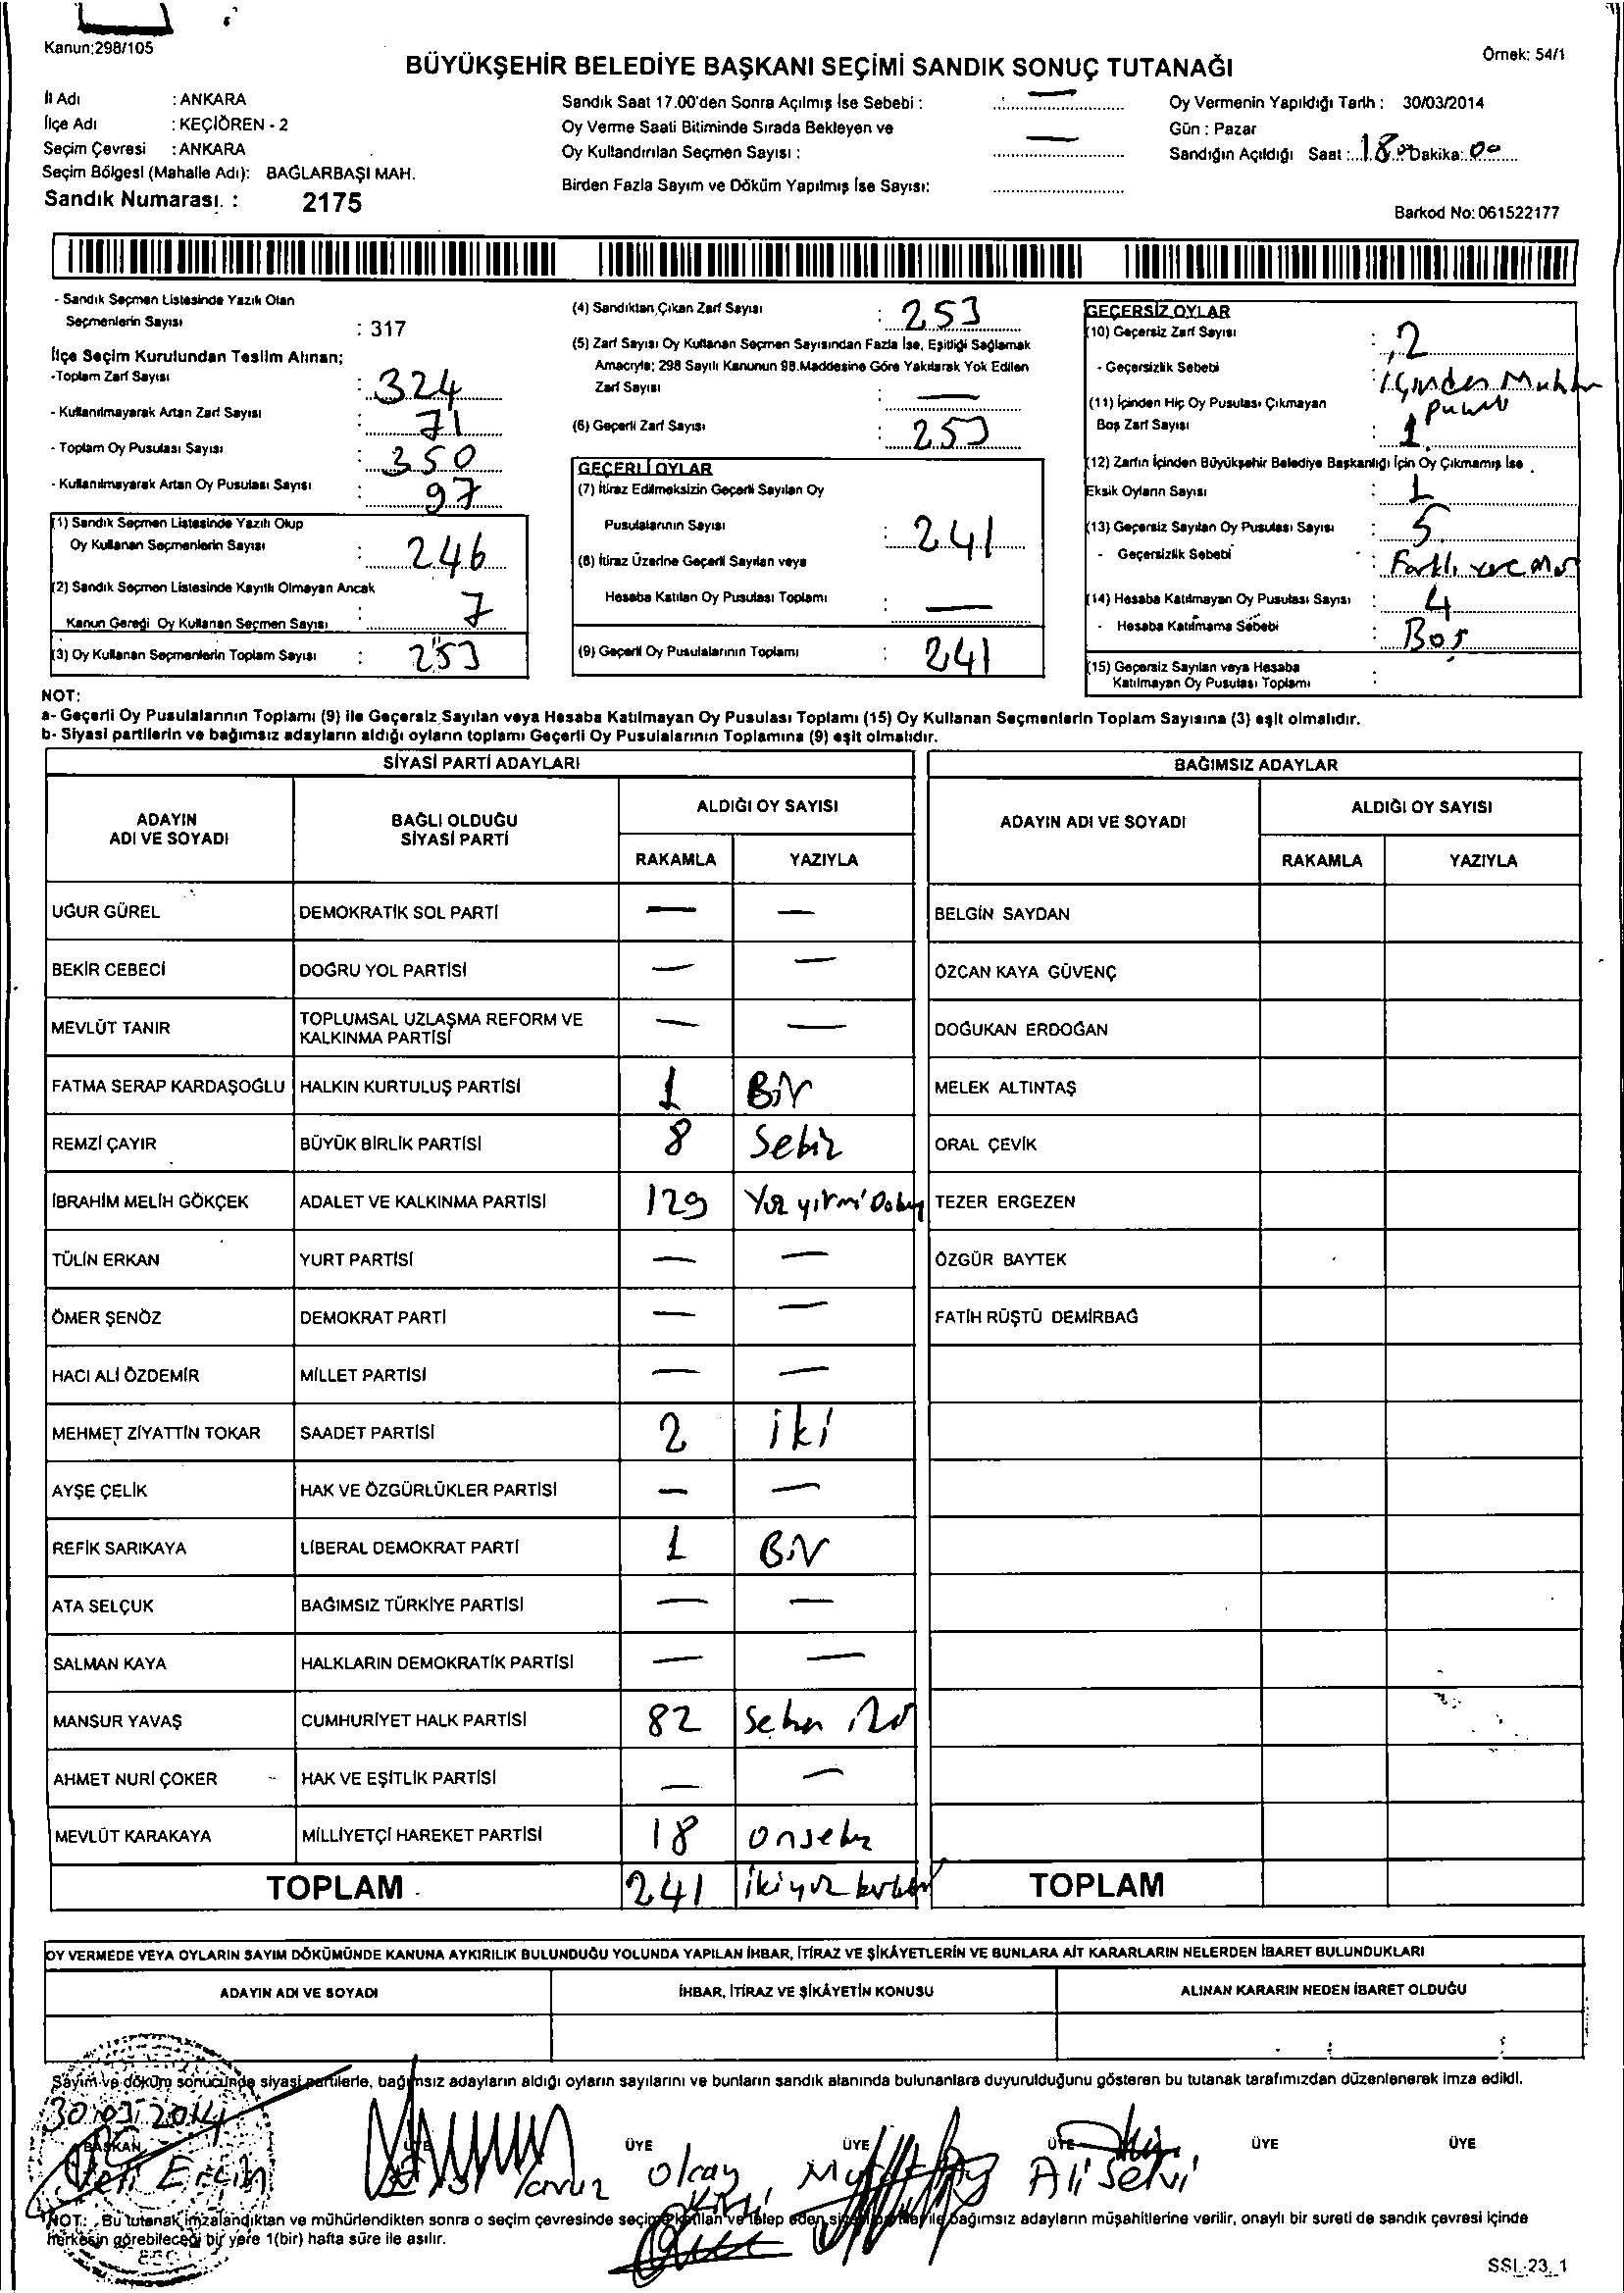 Kanun:298/105
Örnek: 54/1
BÜYÜKŞEHİR BELEDİYE BAŞKANI SEÇİMİ SANDIK SONUÇ TUTANAĞI
İl Adı : ANKARA
İlçe Adı : KEÇİÖREN - 2
Seçim Çevresi : ANKARA
Seçim Bölgesi (Mahalle Adı): BAĞLARBAŞI MAH.
Sandık Numarası. : 2175
Sandık Saat 17.00'den Sonra Açılmış İse Sebebi : —
Oy Verme Saati Bitiminde Sırada Bekleyen ve
Oy Kullandırılan Seçmen Sayısı : —
Birden Fazla Sayım ve Döküm Yapılmış İse Sayısı:
Oy Vermenin Yapıldığı Tarih : 30/03/2014
Gün : Pazar
Sandığın Açıldığı Saat : 18 Dakika: 00
Barkod No: 061522177
- Sandık Seçmen Listesinde Yazılı Olan
Seçmenlerin Sayısı : 317
İlçe Seçim Kurulundan Teslim Alınan;
-Toplam Zarf Sayısı : 324
- Kullanılmayarak Artan Zarf Sayısı : 71
- Toplam Oy Pusulası Sayısı : 350
- Kullanılmayarak Artan Oy Pusulası Sayısı : 97
(1) Sandık Seçmen Listesinde Yazılı Olup
Oy Kullanan Seçmenlerin Sayısı : 246
(2) Sandık Seçmen Listesinde Kayıtlı Olmayan Ancak
Kanun Gereği Oy Kullanan Seçmen Sayısı : 7
(3) Oy Kullanan Seçmenlerin Toplam Sayısı : 253
(4) Sandıktan Çıkan Zarf Sayısı : 253
(5) Zarf Sayısı Oy Kullanan Seçmen Sayısından Fazla İse, Eşitliği Sağlamak
Amacıyla; 298 Sayılı Kanunun 98.Maddesine Göre Yakılarak Yok Edilen
Zarf Sayısı : —
(6) Geçerli Zarf Sayısı : 253
GEÇERLİ OYLAR
(7) İtiraz Edilmeksizin Geçerli Sayılan Oy
Pusulalarının Sayısı : 241
(8) İtiraz Üzerine Geçerli Sayılan veya
Hesaba Katılan Oy Pusulası Toplamı : —
(9) Geçerli Oy Pusulalarının Toplamı : 241
GEÇERSİZ OYLAR
(10) Geçersiz Zarf Sayısı : 2
- Geçersizlik Sebebi : içinden
(11) İçinden Hiç Oy Pusulası Çıkmayan
Boş Zarf Sayısı : 1
(12) Zarfın İçinden Büyükşehir Belediye Başkanlığı İçin Oy Çıkmamış İse
Eksik Oyların Sayısı : 1
(13) Geçersiz Sayılan Oy Pusulası Sayısı : 5
- Geçersizlik Sebebi : Farklı yere
(14) Hesaba Katılmayan Oy Pusulası Sayısı : 4
- Hesaba Katılmama Sebebi : Boş
(15) Geçersiz Sayılan veya Hesaba
Katılmayan Oy Pusulası Toplamı :
NOT:
a- Geçerli Oy Pusulalarının Toplamı (9) ile Geçersiz Sayılan veya Hesaba Katılmayan Oy Pusulası Toplamı (15) Oy Kullanan Seçmenlerin Toplam Sayısına (3) eşit olmalıdır.
b- Siyasi partilerin ve bağımsız adayların aldığı oyların toplamı Geçerli Oy Pusulalarının Toplamına (9) eşit olmalıdır.
SİYASİ PARTİ ADAYLARI
ADAYIN ADI VE SOYADI
BAĞLI OLDUĞU SİYASİ PARTİ
ALDIĞI OY SAYISI
RAKAMLA YAZIYLA
UĞUR GÜREL DEMOKRATİK SOL PARTİ — —
BEKİR CEBECİ DOĞRU YOL PARTİSİ — —
MEVLÜT TANIR TOPLUMSAL UZLAŞMA REFORM VE KALKINMA PARTİSİ — —
FATMA SERAP KARDAŞOĞLU HALKIN KURTULUŞ PARTİSİ 1 Bir
REMZİ ÇAYIR BÜYÜK BİRLİK PARTİSİ 8 Sekiz
İBRAHİM MELİH GÖKÇEK ADALET VE KALKINMA PARTİSİ 129 Yüz yirmi Dokuz
TÜLİN ERKAN YURT PARTİSİ — —
ÖMER ŞENÖZ DEMOKRAT PARTİ — —
HACI ALİ ÖZDEMİR MİLLET PARTİSİ — —
MEHMET ZİYATTİN TOKAR SAADET PARTİSİ 2 iki
AYŞE ÇELİK HAK VE ÖZGÜRLÜKLER PARTİSİ — —
REFİK SARIKAYA LİBERAL DEMOKRAT PARTİ 1 Bir
ATA SELÇUK BAĞIMSIZ TÜRKİYE PARTİSİ — —
SALMAN KAYA HALKLARIN DEMOKRATİK PARTİSİ — —
MANSUR YAVAŞ CUMHURİYET HALK PARTİSİ 82 Seksen iki
AHMET NURİ ÇOKER HAK VE EŞİTLİK PARTİSİ — —
MEVLÜT KARAKAYA MİLLİYETÇİ HAREKET PARTİSİ 18 onsekiz
TOPLAM 241 ikiyüz kırkbir
BAĞIMSIZ ADAYLAR
ADAYIN ADI VE SOYADI
ALDIĞI OY SAYISI
RAKAMLA YAZIYLA
BELGİN SAYDAN
ÖZCAN KAYA GÜVENÇ
DOĞUKAN ERDOĞAN
MELEK ALTINTAŞ
ORAL ÇEVİK
TEZER ERGEZEN
ÖZGÜR BAYTEK
FATİH RÜŞTÜ DEMİRBAĞ
TOPLAM
OY VERMEDE VEYA OYLARIN SAYIM DÖKÜMÜNDE KANUNA AYKIRILIK BULUNDUĞU YOLUNDA YAPILAN İHBAR, İTİRAZ VE ŞİKÂYETLERİN VE BUNLARA AİT KARARLARIN NELERDEN İBARET BULUNDUKLARI
ADAYIN ADI VE SOYADI İHBAR, İTİRAZ VE ŞİKÂYETİN KONUSU ALINAN KARARIN NEDEN İBARET OLDUĞU
Sayım ve döküm sonucunda siyasi partilerle, bağımsız adayların aldığı oyların sayılarını ve bunların sandık alanında bulunanlara duyurulduğunu gösteren bu tutanak tarafımızdan düzenlenerek imza edildi.
30.03.2014
BAŞKAN ÜYE ÜYE ÜYE ÜYE ÜYE ÜYE
Veli Yavuz Olcay Ali Selvi
NOT: Bu tutanak imzalandıktan ve mühürlendikten sonra o seçim çevresinde seçime katılan ve talep eden siyasi partiler ile bağımsız adayların müşahitlerine verilir, onaylı bir sureti de sandık çevresi içinde
herkesin görebileceği bir yere 1(bir) hafta süre ile asılır.
SSL_23_1